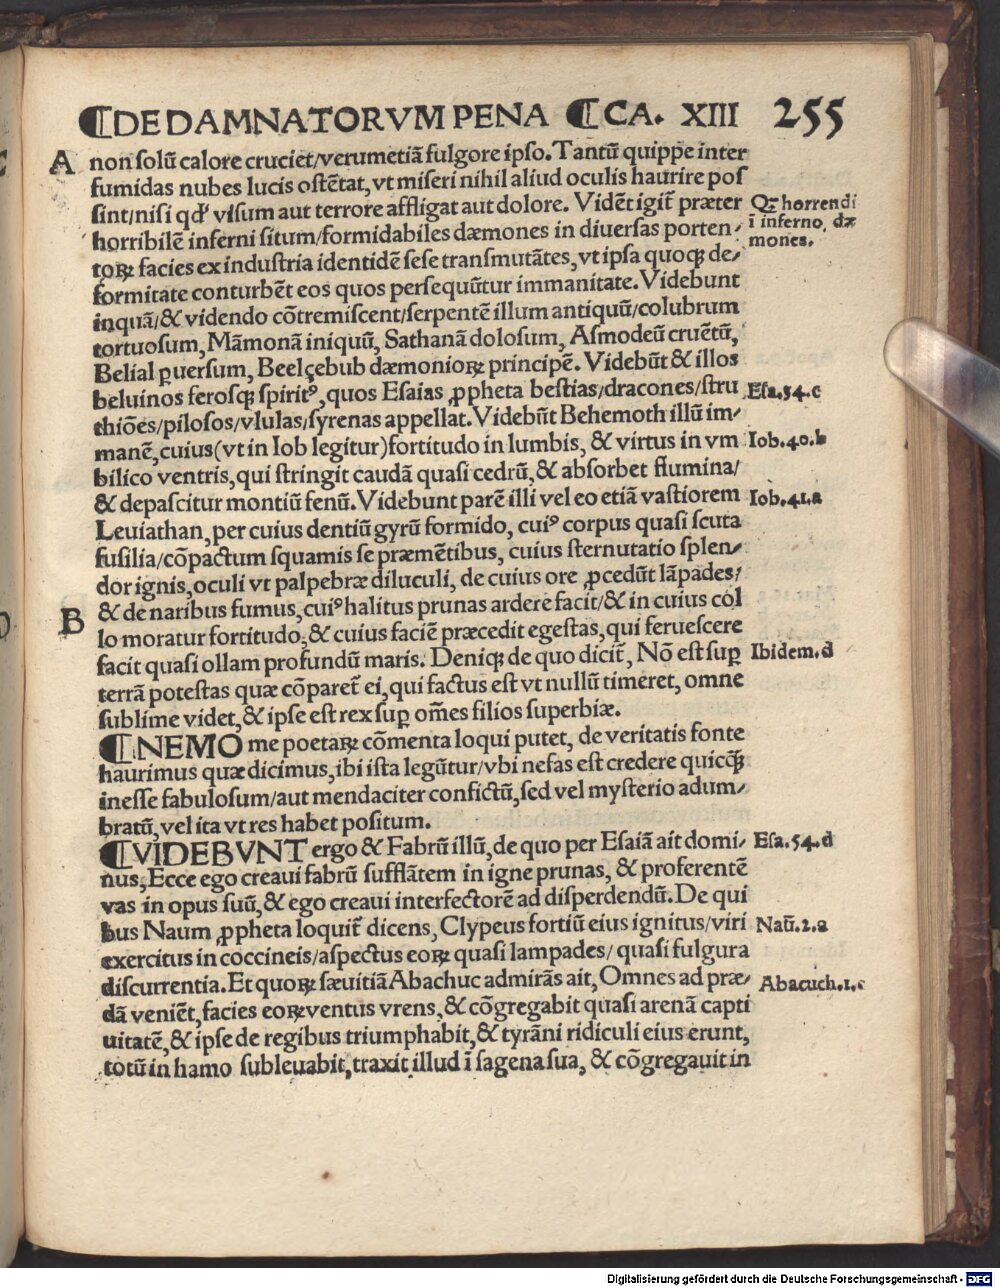 ⸿DE DAMNATORVM PENA ⸿CA. XIII 255
A non solũ calore cruciet/verumetiã fulgore ipso. Tantũ quippe inter
fumidas nubes lucis ostẽtat, vt miseri nihil aliud oculis haurire pos
sint/nisi qđ visum aut terrore affligat aut dolore. Vidẽt igit᷑ præter
horribilẽ inferni situm/formidabiles dæmones in diuersas porten⸗
toꝝ facies ex industria identidẽ sese transmutãtes, vt ipsa quoqꝫ de⸗
formitate conturbẽt eos quos persequũtur immanitate. Videbunt
inquã/& videndo cõtremiscent/serpentẽ illum antiquũ/colubrum
tortuosum, Mãmonã iniquũ, Sathanã dolosum, Asmodeũ cruẽtũ,
Belial ꝑuersum, Beelçebub dæmonioꝝ principẽ. Videbũt & illos
beluinos ferosqꝫ spiritꝰ, quos Esaias ꝓpheta bestias/dracones/stru
thiões/pilosos/vlulas/syrenas appellat. Videbũt Behemoth illũ im⸗
manẽ, cuius(vt in Iob legitur)fortitudo in lumbis, & virtus in vm
bilico ventris, qui stringit caudã quasi cedrũ, & absorbet flumina/
& depascitur montiũ fenũ. Videbunt parẽ illi vel eo etiã vastiorem
Leuiathan, per cuius dentiũ gyrũ formido, cuiꝰ corpus quasi scuta
fusilia/cõpactum squamis se præmẽtibus, cuius sternutatio splen⸗
dor ignis, oculi vt palpebræ diluculi, de cuius ore ꝓcedũt lãpades/
& de naribus fumus, cuiꝰ halitus prunas ardere facit/& in cuius col
B lo moratur fortitudo, & cuius faciẽ præcedit egestas, qui feruescere
facit quasi ollam profundũ maris. Deniqꝫ de quo dicit᷑, Nõ est suꝑ
terrã potestas quæ cõparet᷑ ei, qui factus est vt nullũ timeret, omne
sublime videt, & ipse est rex suꝑ om̃es filios superbiæ.
⸿NEMO me poetaꝝ cõmenta loqui putet, de veritatis fonte
haurimus quæ dicimus, ibi ista legũtur/vbi nefas est credere quicqꝫ̃
inesse fabulosum/aut mendaciter confictũ, sed vel mysterio adum⸗
bratũ, vel ita vt res habet positum.
⸿VIDEBVNT ergo & Fabrũ illũ, de quo per Esaiã ait domi⸗
nus, Ecce ego creaui fabrũ sufflãtem in igne prunas, & proferentẽ
vas in opus suũ, & ego creaui interfectorẽ ad disperdendũ. De qui
bus Naum ꝓpheta loquit᷑ dicens, Clypeus fortiũ eius ignitus/viri
exercitus in coccineis/aspectus eoꝝ quasi lampades/ quasi fulgura
discurrentia. Et quoꝝ sæuitiã Abachuc admirãs ait, Omnes ad præ⸗
dã veniẽt, facies eoꝝ ventus vrens, & cõgregabit quasi arenã capti
uitatẽ, & ipse de regibus triumphabit, & tyrãni ridiculi eius erunt,
totũ in hamo subleuabit, traxit illud ĩ sagena sua, & cõgregauit in
horrendi
ĩ inferno, dæ
mones.
Esa.34.c
Iob.40.b
Iob.41.a
Ibidem.d
Esa.54.d
Naũ.2.a
Abacuch.1.c
Digitalisierung gefördert durch die Deutsche Forschungsgemeinschaft - DFG